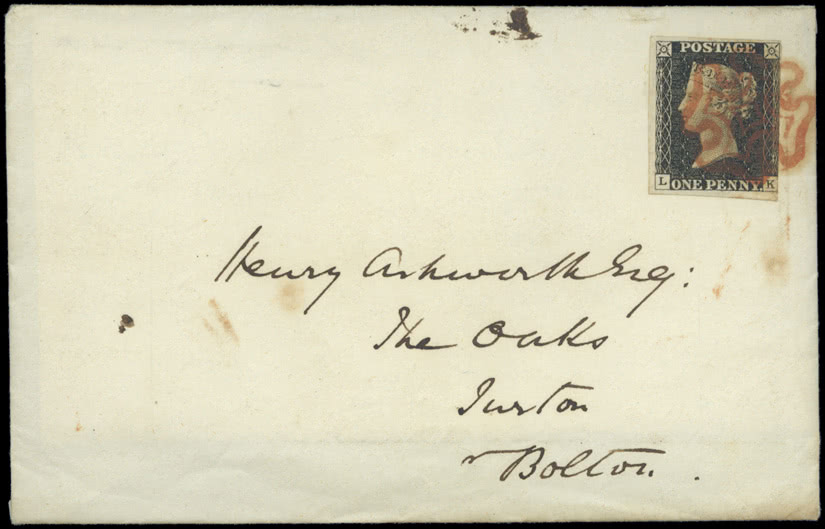 POSTAGE
L ONE PENNY. K
Henry Ashworth Esq:
The Oaks
Turton
nr Bolton.